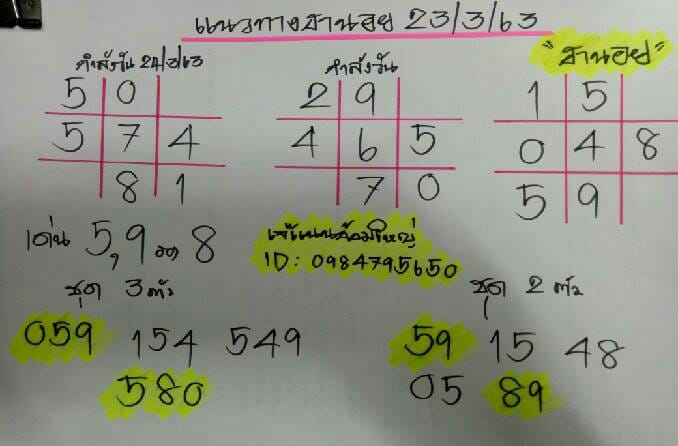 แนวทางฮานอย 23/3/63
กำลังวัน 24/3/63
5 0
5 7 4
8 1
กำลังวัน
2 9
4 6 5
7 0
"ฮานอย"
1 5
0 4 8
5 9
เด่น 5,9 รอง 8
ID: 0984795650
ชุด 3 ตัว
059 154 549
580
ชุด 2 ตัว
59 15 48
05 89